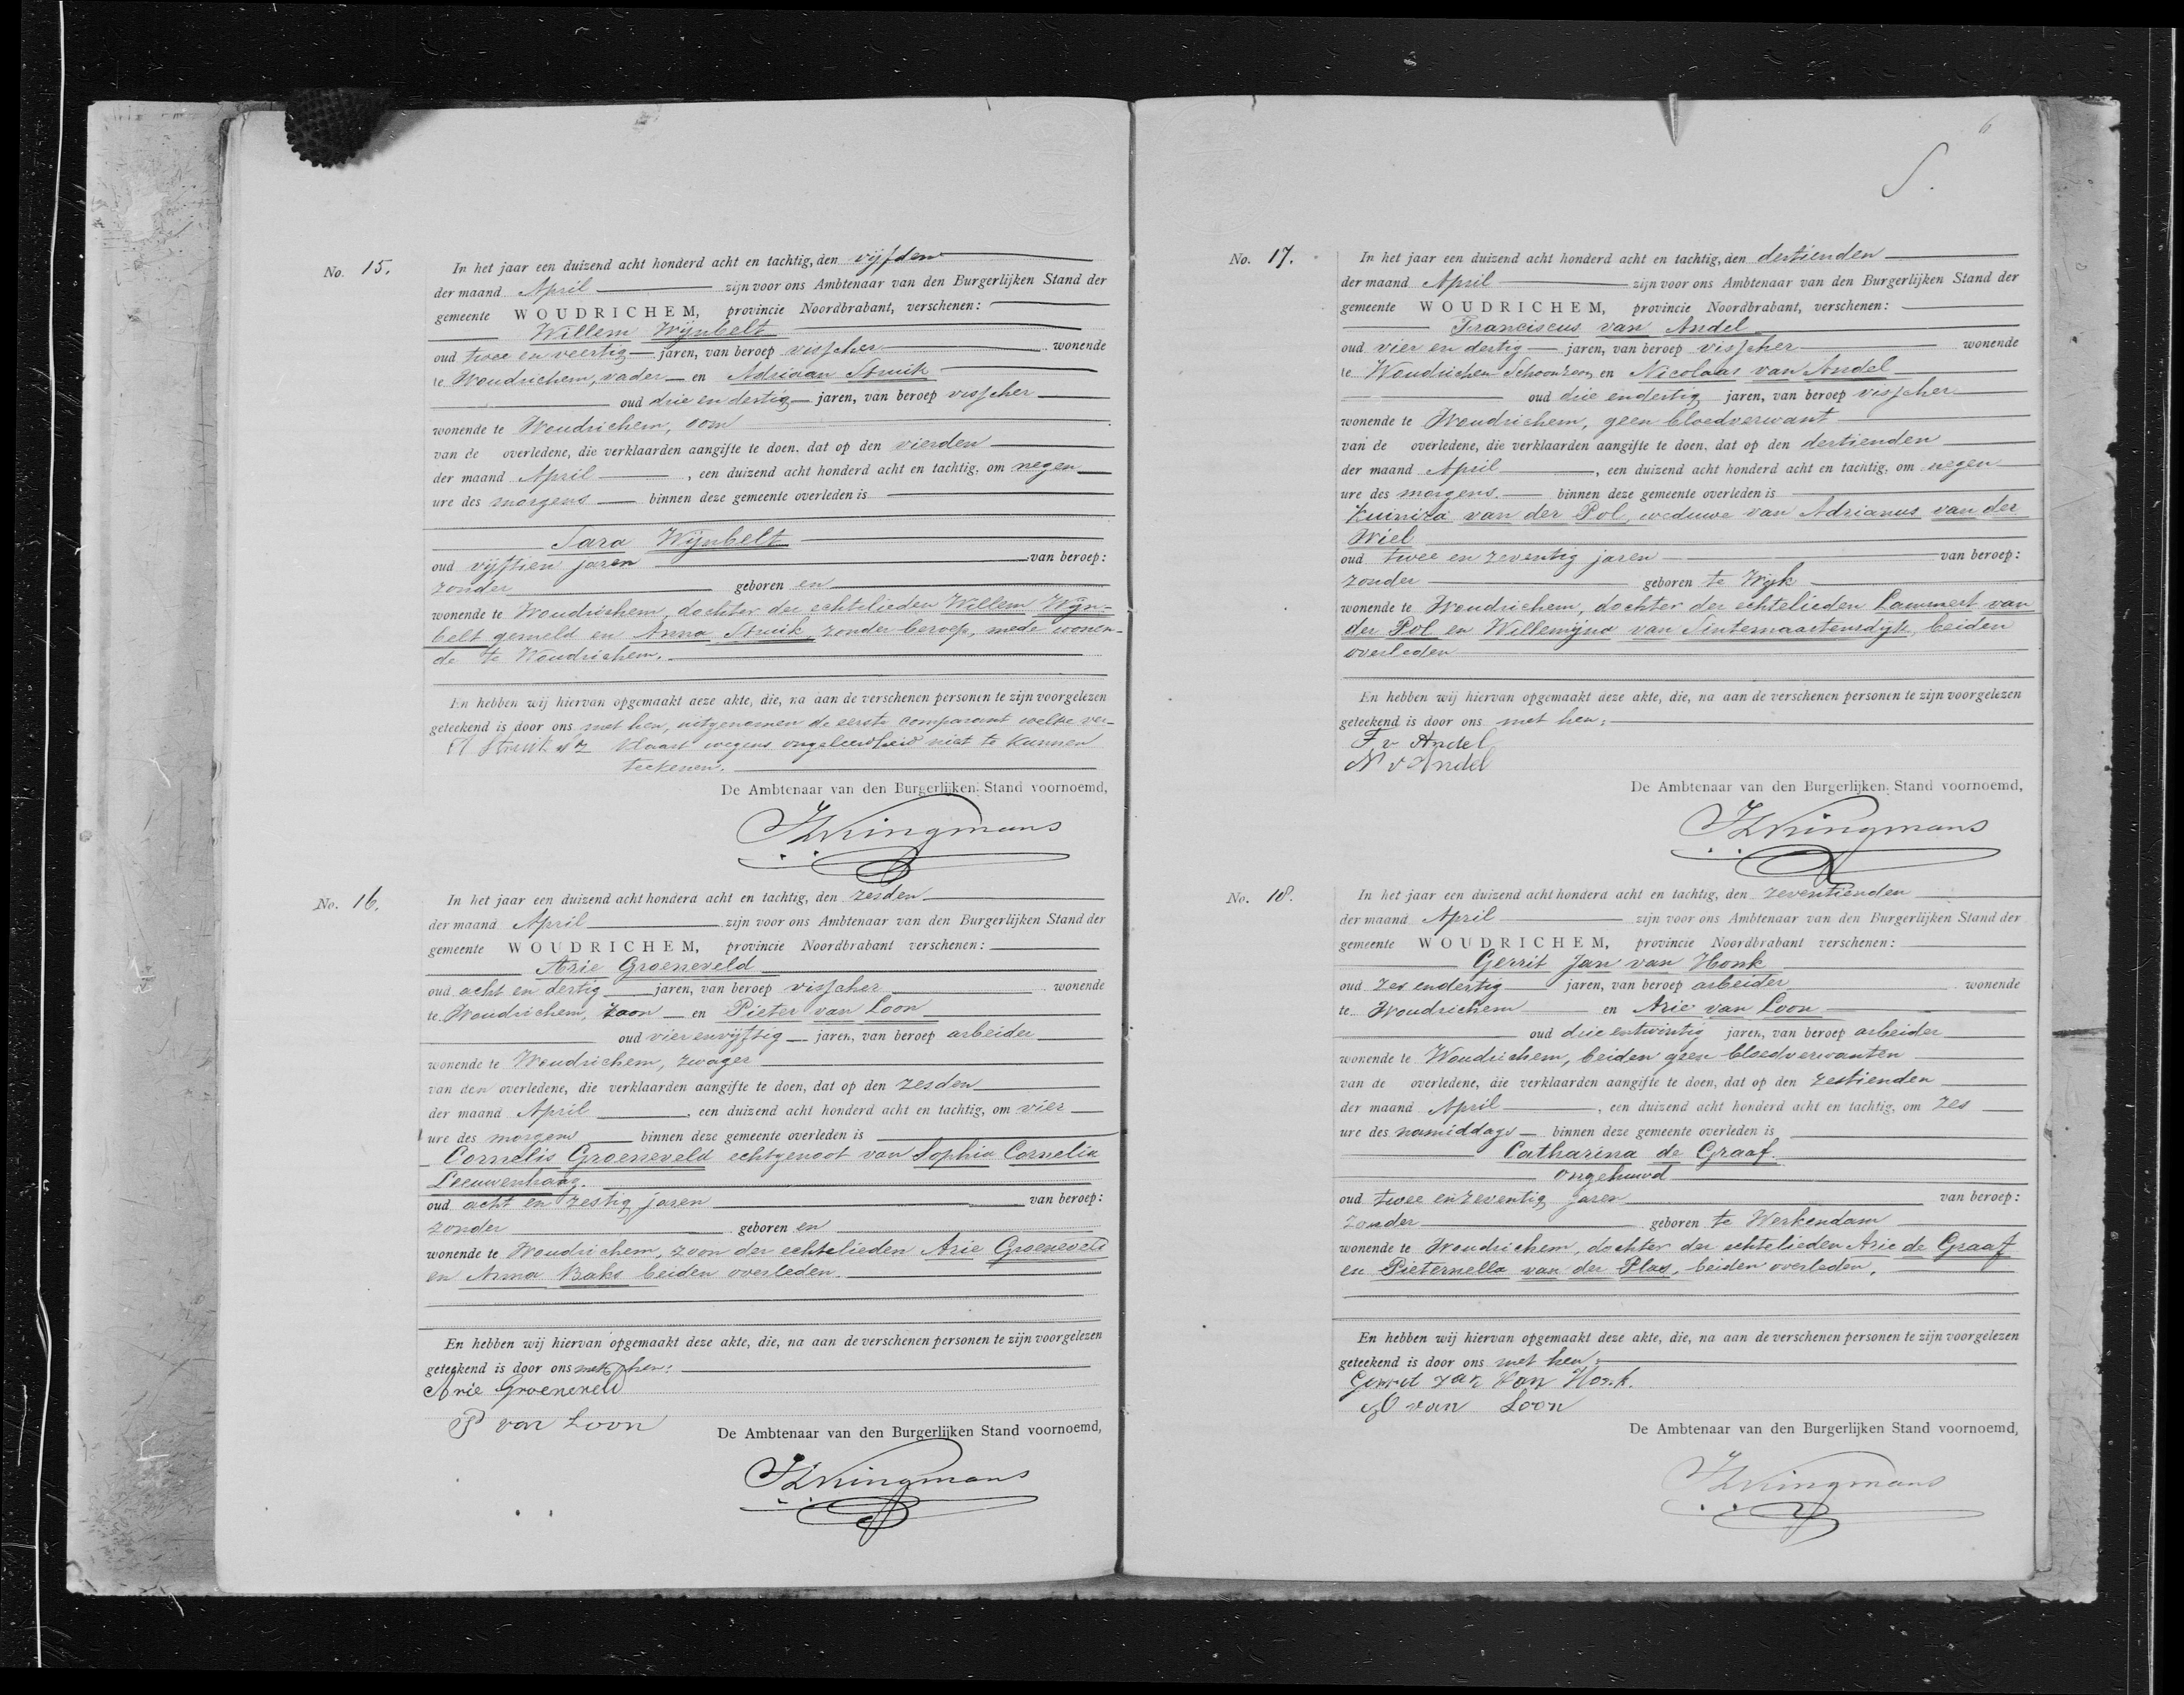 6
S.
No. 15.
In het jaar een duizend acht honderd acht en tachtig, den vijfden
der maand April zijn voor ons Ambtenaar van den Burgerlijken Stand der
gemeente WOUDRICHEM, provincie Noordbrabant, verschenen:
Willem Wijnbelt
oud twee en veertig jaren, van beroep visscher wonende
te Woudrichem, vader en Adriaan Struik
oud drie en dertig jaren, van beroep visscher
wonende te Woudrichem, oom
van de overledene, die verklaarden aangifte te doen, dat op den vierden
der maand April, een duizend acht honderd acht en tachtig, om negen
ure des morgens binnen deze gemeente overleden is
Sara Wijnbelt
oud vijftien jaren van beroep:
zonder geboren en
wonende te Woudrichem, dochter der echtelieden Willem Wijn-
belt gemeld en Anna Struik, zonder beroep, mede wonen-
de te Woudrichem.
En hebben wij hiervan opgemaakt deze akte, die, na aan de verschenen personen te zijn voorgelezen
geteekend is door ons met hen, uitgenomen de eerste comparant welke ver-
A Struik Az klaart wegens ongeleerdheid niet te kunnen
teekenen.
De Ambtenaar van den Burgerlijken Stand voornoemd,
Kringmans
No. 16.
In het jaar een duizend acht honderd acht en tachtig, den zesden
der maand April zijn voor ons Ambtenaar van den Burgerlijken Stand der
gemeente WOUDRICHEM, provincie Noordbrabant verschenen:
Arie Groeneveld
oud acht en dertig jaren, van beroep visscher wonende
te Woudrichem, zoon en Pieter van Loon
oud vier en vijftig jaren, van beroep arbeider
wonende te Woudrichem, zwager
van den overledene, die verklaarden aangifte te doen, dat op den zesden
der maand April, een duizend acht honderd acht en tachtig, om vier
ure des morgens binnen deze gemeente overleden is
Cornelis Groeneveld echtgenoot van Sophia Cornelia
Leeuwenhaag.
oud acht en zestig jaren van beroep:
zonder geboren en
wonende te Woudrichem, zoon der echtelieden Arie Groeneveld
en Anna Baks beiden overleden.
En hebben wij hiervan opgemaakt deze akte, die, na aan de verschenen personen te zijn voorgelezen
geteekend is door ons met hen:
Arie Groeneveld
P van Loon
De Ambtenaar van den Burgerlijken Stand voornoemd,
Kringmans
No. 17.
In het jaar een duizend acht honderd acht en tachtig, den dertienden
der maand April zijn voor ons Ambtenaar van den Burgerlijken Stand der
gemeente WOUDRICHEM, provincie Noordbrabant, verschenen:
Franciscus van Andel
oud vier en dertig jaren, van beroep visscher wonende
te Woudrichem Schoonzoon en Nicolaas van Andel
oud drie en dertig jaren, van beroep visscher
wonende te Woudrichem, geen bloedverwant
van de overledene, die verklaarden aangifte te doen, dat op den dertienden
der maand April, een duizend acht honderd acht en tachtig, om negen
ure des morgens binnen deze gemeente overleden is
Kuinira van der Pol, weduwe van Adrianus van der
Wiel
oud twee en zeventig jaren van beroep:
zonder geboren te Wijk
wonende te Woudrichem, dochter der echtelieden Lammert van
der Pol en Willemijna van Sintemaartensdijk, beiden
overleden
En hebben wij hiervan opgemaakt deze akte, die, na aan de verschenen personen te zijn voorgelezen
geteekend is door ons met hen:
F v Andel
N v Andel
De Ambtenaar van den Burgerlijken Stand voornoemd,
Kringmans
No. 18.
In het jaar een duizend acht honderd acht en tachtig, den zeventienden
der maand April zijn voor ons Ambtenaar van den Burgerlijken Stand der
gemeente WOUDRICHEM, provincie Noordbrabant verschenen:
Gerrit Jan van Honk
oud zes en dertig jaren, van beroep arbeider wonende
te Woudrichem en Arie van Loon
oud drie en twintig jaren, van beroep arbeider
wonende te Woudrichem, beiden geen bloedverwanten
van de overledene, die verklaarden aangifte te doen, dat op den zestienden
der maand April, een duizend acht honderd acht en tachtig, om zes
ure des namiddags binnen deze gemeente overleden is
Catharina de Graaf.
ongehuwd
oud twee en zeventig jaren van beroep:
zonder geboren te Werkendam
wonende te Woudrichem, dochter der echtelieden Arie de Graaf
en Pieternella van der Plas, beiden overleden.
En hebben wij hiervan opgemaakt deze akte, die, na aan de verschenen personen te zijn voorgelezen
geteekend is door ons met hen:
Gerrit Jan Van Honk.
A van Loon
De Ambtenaar van den Burgerlijken Stand voornoemd,
Kringmans